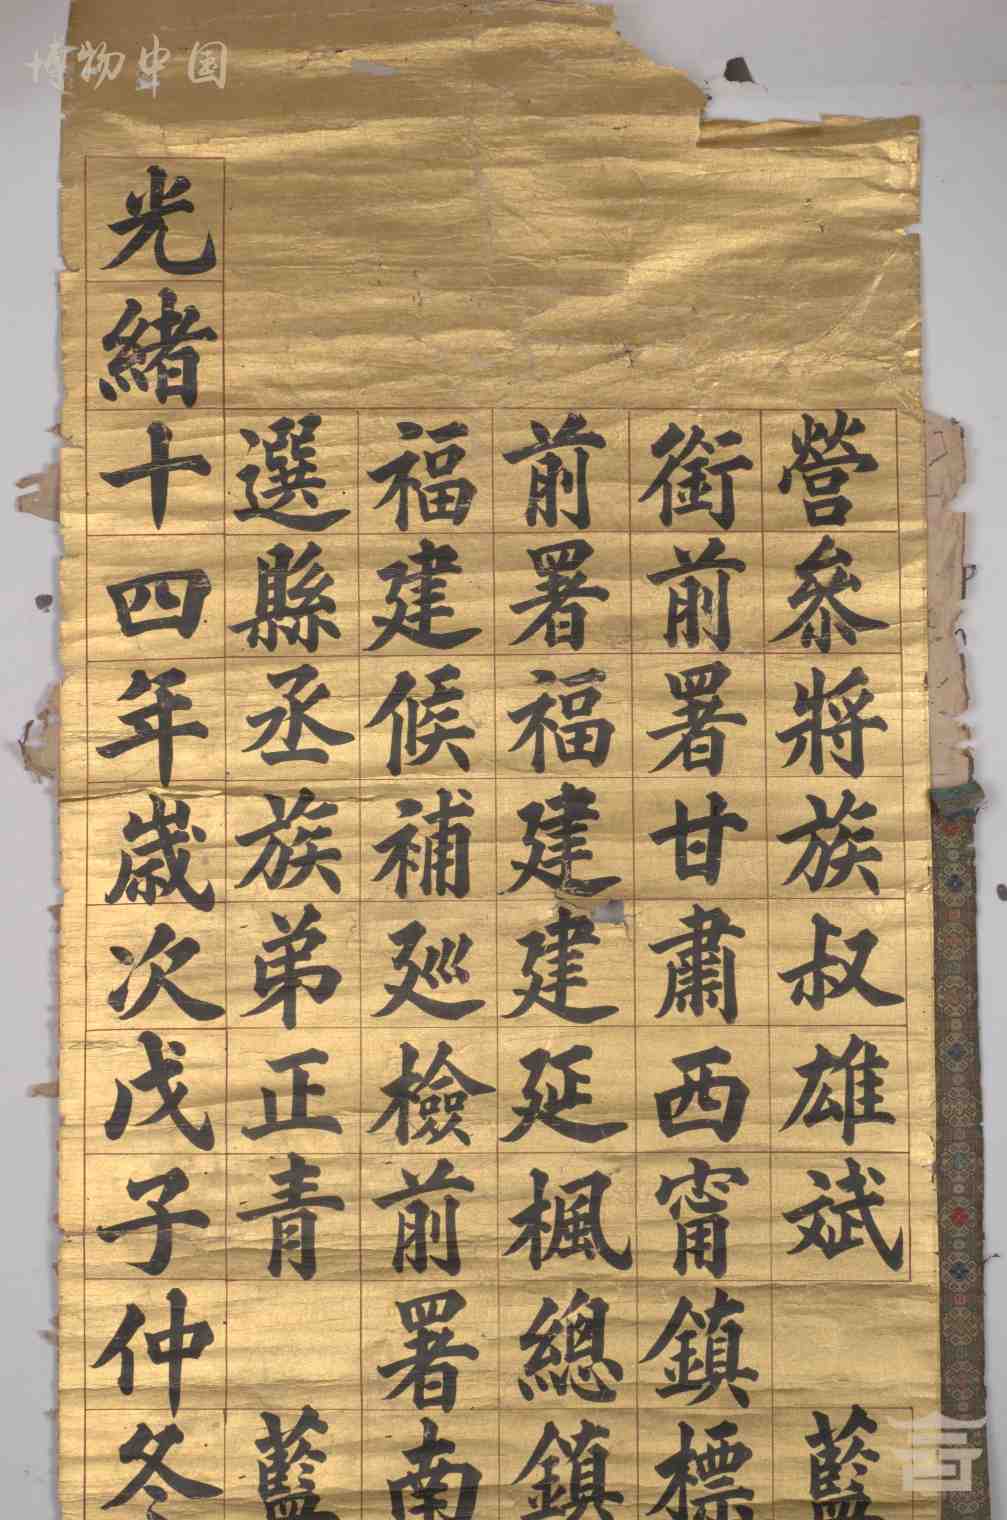 博物中国
營參將族叔雄斌 藍
銜前署甘肅西甯鎮標
前署福建建延楓總鎮
福建候補廵檢前署南
選縣丞族弟正青 藍
光緒十四年歲次戊子仲冬